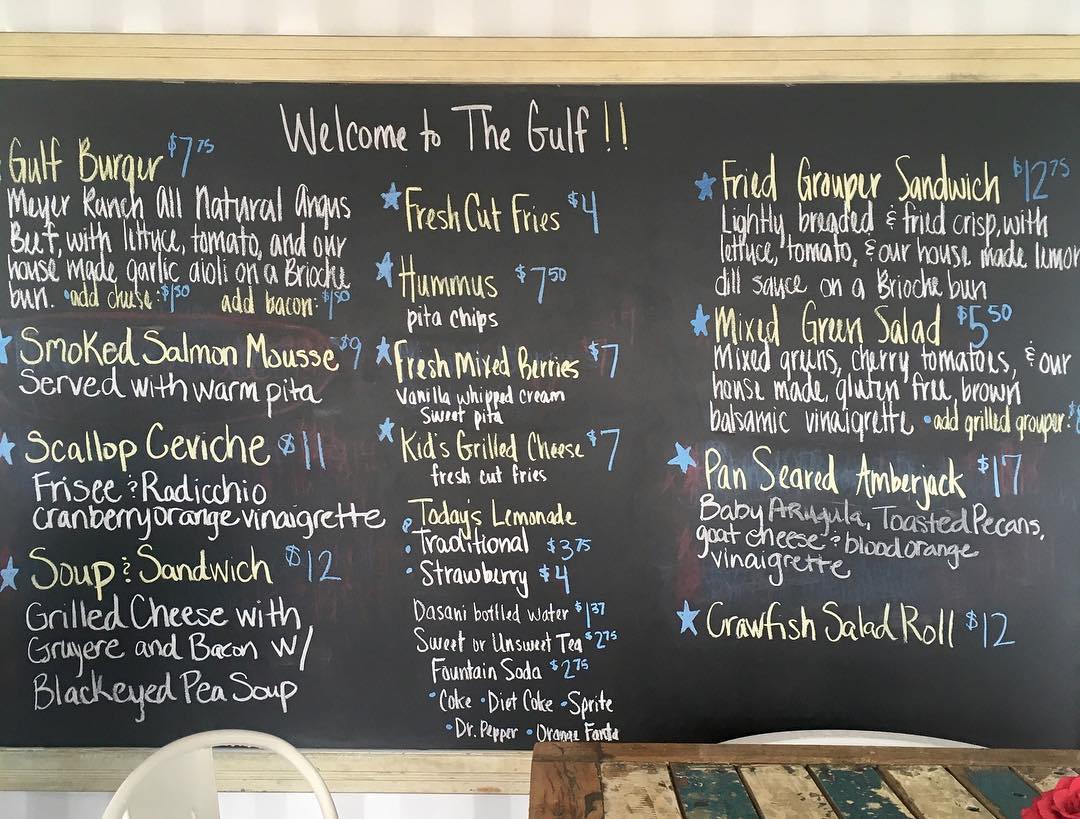 Welcome to The Gulf!!
Gulf Burger $7.75
Meyer Ranch All Natural Angus
Beef, with lettuce, tomato, and our
house made garlic aioli on a Brioche
bun. •add cheese: $1.50 add bacon: $1.50
Smoked Salmon Mousse $9
Served with warm pita
Scallop Ceviche $11
Frisee & Radicchio
cranberry orange vinaigrette
Soup & Sandwich $12
Grilled Cheese with
Gruyere and Bacon w/
Blackeyed Pea Soup
Fresh Cut Fries $4
Hummus $7.50
pita chips
Fresh Mixed Berries $7
vanilla whipped cream
Sweet pita
Kid's Grilled Cheese $7
fresh cut fries
Today's Lemonade
• Traditional $3.75
• Strawberry $4
Dasani bottled water $1.37
Sweet or Unsweet Tea $2.75
Fountain Soda $2.75
•Coke •Diet Coke •Sprite
•Dr. Pepper •Orange Fanta
Fried Grouper Sandwich $12.75
Lightly breaded & fried crisp, with
lettuce, tomato, & our house made lemon
dill sauce on a Brioche bun
Mixed Green Salad $5.50
Mixed greens, cherry tomatoes, & our
house made, gluten free, brown
balsamic vinaigrette •add grilled grouper:
Pan Seared Amberjack $17
Baby Arugula, Toasted Pecans,
goat cheese & blood orange
vinaigrette
Crawfish Salad Roll $12